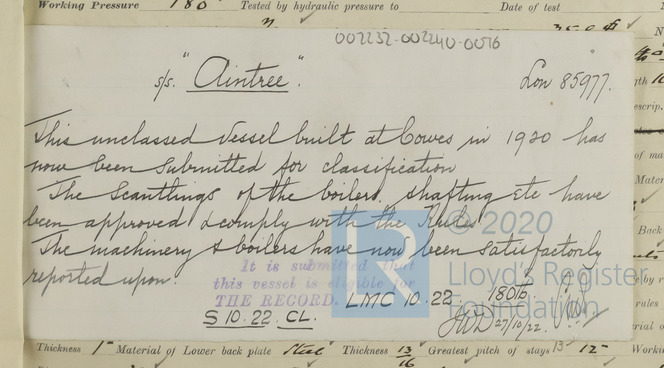 Working Pressure 180 Tested by hydraulic pressure to Date of test
002232-002240-0076
s/s. "Aintree". Lon 85977.
This unclassed Vessel built at Cowes in 1920 has
now been submitted for classification
The Scantlings of the boilers, shafting etc have
been approved & comply with the Rules
The machinery & boilers have now been satisfactorily
reported upon.
It is submitted that
this vessel is eligible for
THE RECORD. LMC 10.22. 180lb
S 10.22. CL.
27/10/22.
© 2020
Lloyd's Register
Foundation
Thickness 1" Material of Lower back plate Steel Thickness 13/16 Greatest pitch of stays 13" 12"